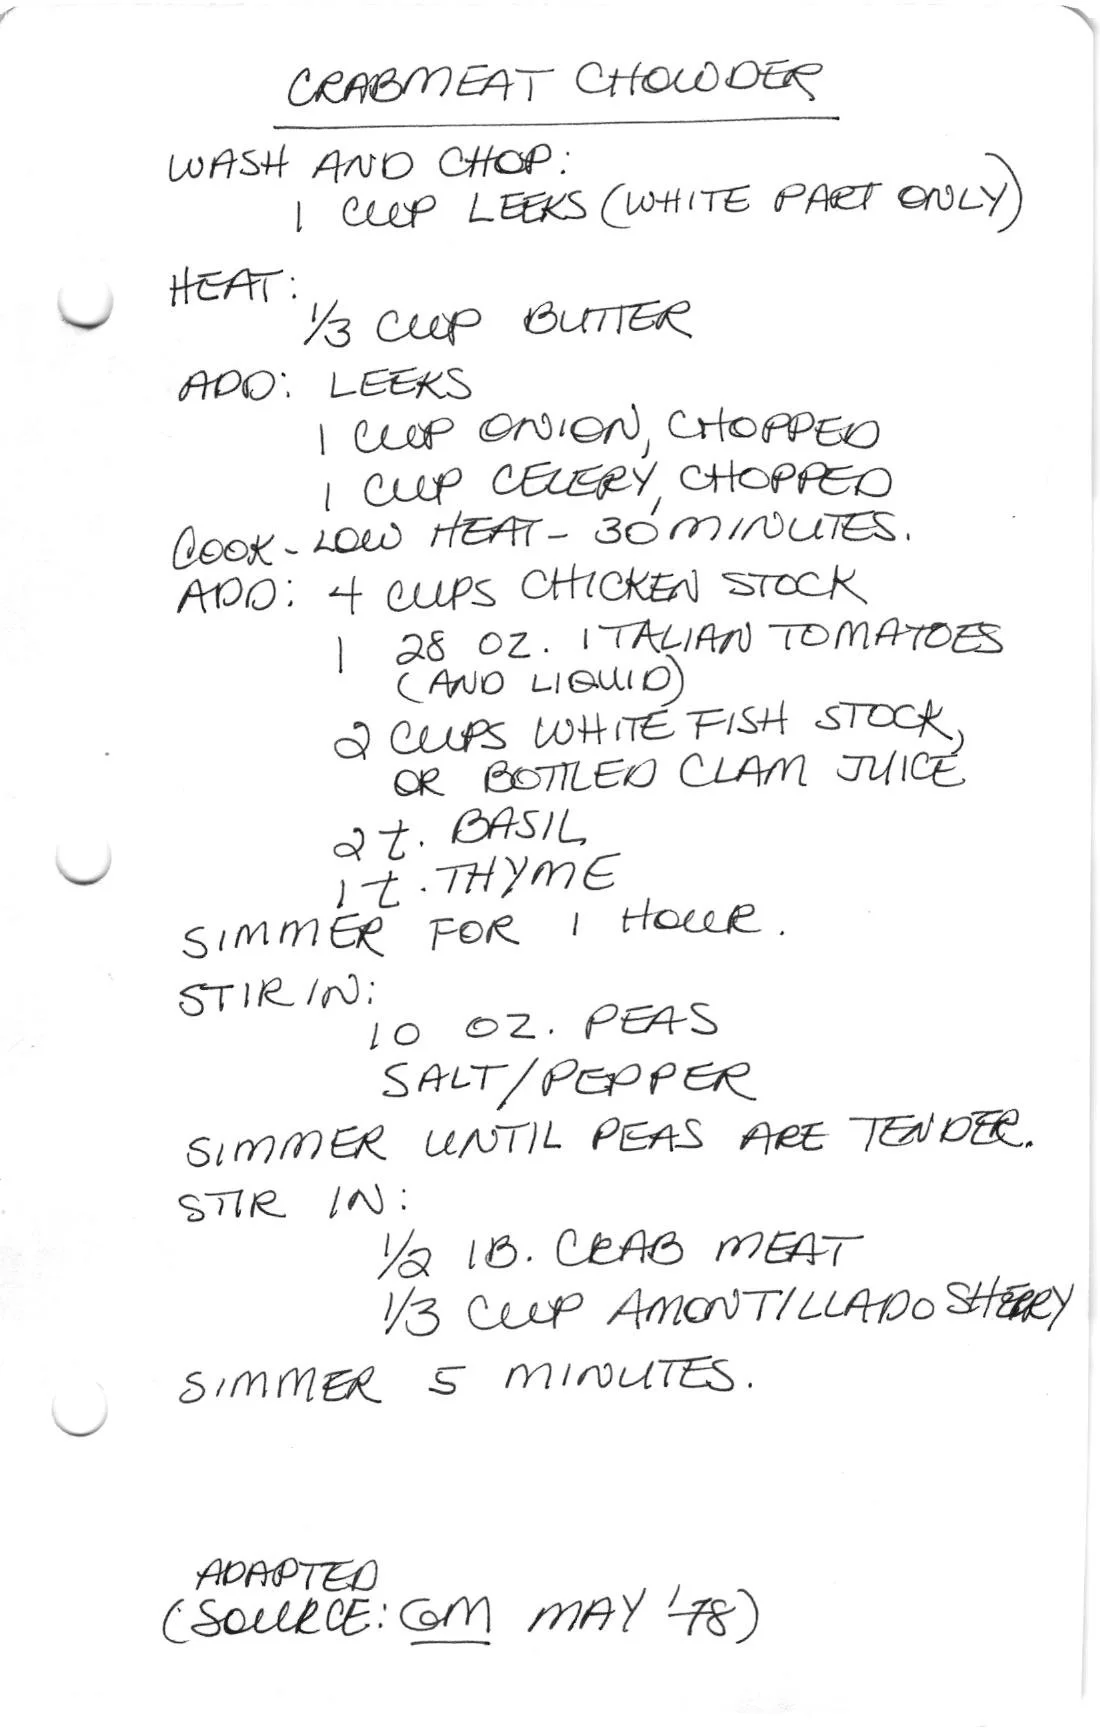 CRABMEAT CHOWDER
WASH AND CHOP:
1 CUP LEEKS (WHITE PART ONLY)
HEAT:
1/3 CUP BUTTER
ADD: LEEKS
1 CUP ONION, CHOPPED
1 CUP CELERY, CHOPPED
COOK - LOW HEAT - 30 MINUTES.
ADD: 4 CUPS CHICKEN STOCK
1 28 OZ. ITALIAN TOMATOES
(AND LIQUID)
2 CUPS WHITE FISH STOCK,
OR BOTTLED CLAM JUICE
2 t. BASIL
1 t. THYME
SIMMER FOR 1 HOUR.
STIR IN:
10 OZ. PEAS
SALT/PEPPER
SIMMER UNTIL PEAS ARE TENDER.
STIR IN:
1/2 lB. CRAB MEAT
1/3 CUP AMONTILLADO SHERRY
SIMMER 5 MINUTES.
ADAPTED
(SOURCE: GM MAY '78)